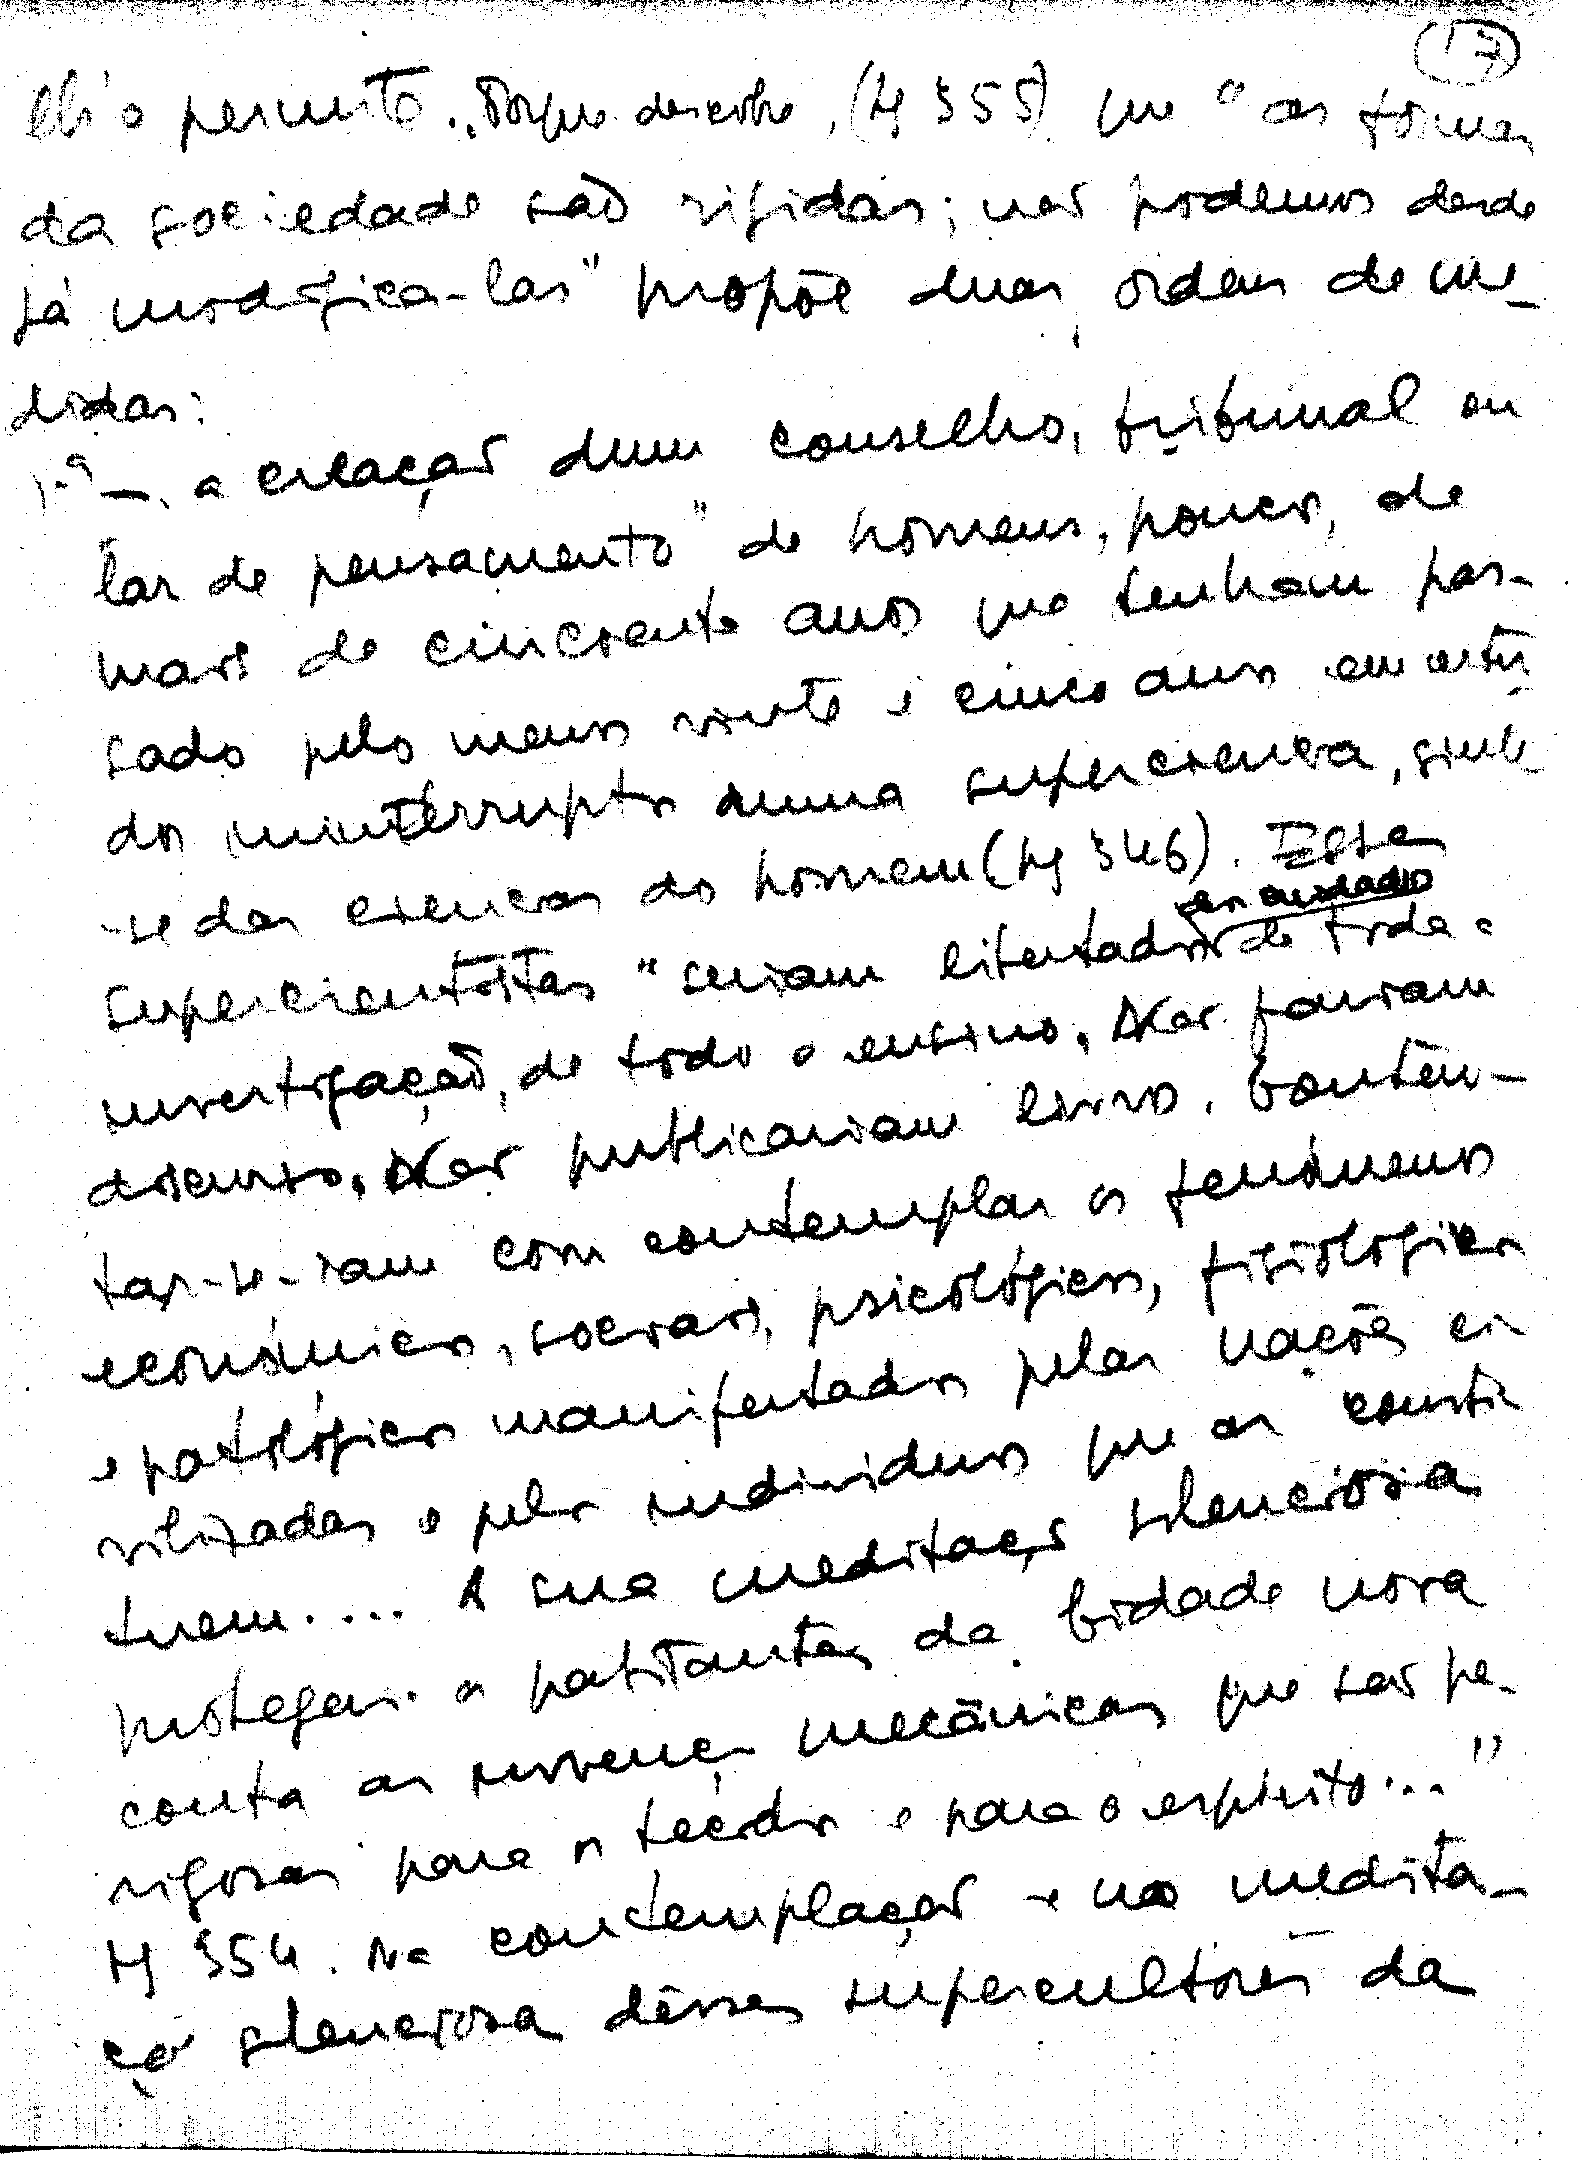 17
lhe o permite. Porque descobre, (H 355) que "as formas
da sociedade são rigidas; não podemos desde
já modifica-las" propõe duas ordens de me-
didas:
1.ª — a creação dum conselho, tribunal ou
"lar de pensamento" de homens, poucos, de
mais de cincoenta anos que tenham pas-
sado pelo menos vinte e cinco anos em estu
dos ininterruptos numa superciencia, sinte
-se das ciencias do homem (H 346). Esses
supercientistas "seriam libertados de toda a
investigação, de todo o ensino. Não fariam
discursos. Não publicariam livros. Conten-
tar-se-iam com contemplar os fenómenos
económicos, sociais, psicológicos, fisiologicos
e patológicos manifestados pelas nações ci
vilizadas e pelos individuos que as consti
tuem.... A sua meditação silenciosa
protegeria os habitantes da Cidade nova
contra as invenções mecânicas que são pe-
rigosas para os tecidos e para o espirito..."
H 354. Na contemplação e na medita-
ção silenciosa dêsses supercultores da